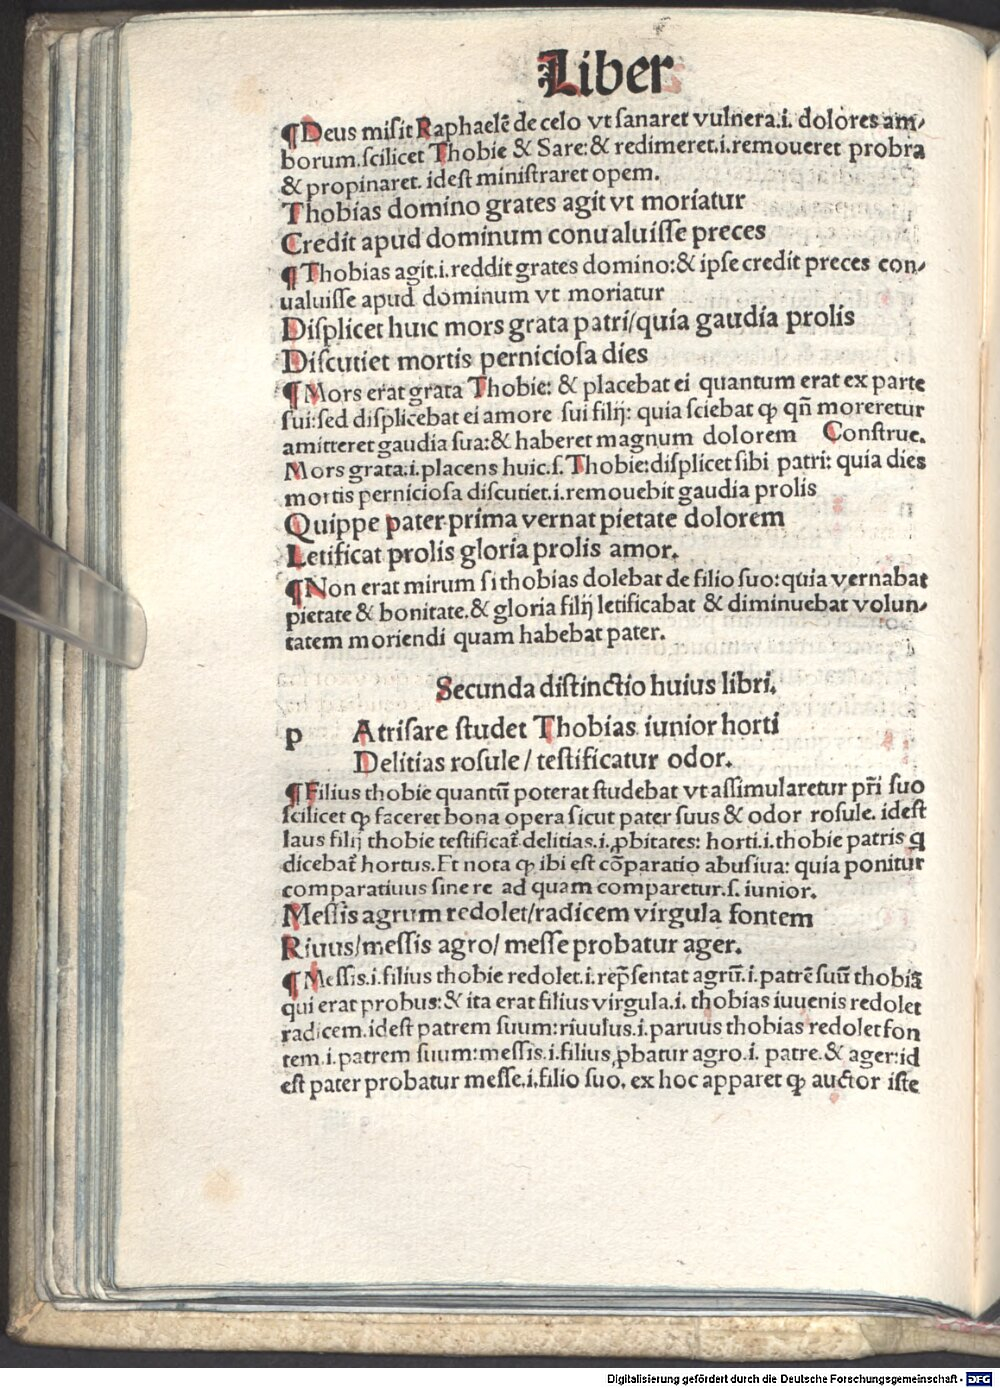 Liber
¶Deus misit Raphaelē de celo vt sanaret vulnera.i. dolores am-
borum.scilicet Thobie & Sare:& redimeret.i.remoueret probra
& propinaret. idest ministraret opem.
Thobias domino grates agit vt moriatur
Credit apud dominum conualuisse preces
¶Thobias agit.i.reddit grates domino:& ipse credit preces con-
ualuisse apud dominum vt moriatur
Displicet huic mors grata patri/quia gaudia prolis
Discutiet mortis perniciosa dies
¶Mors erat grata Thobie: & placebat ei quantum erat ex parte
sui:sed displicebat ei amore sui filij: quia sciebat ꝙ qñ moreretur
amitteret gaudia sua:& haberet magnum dolorem Construe.
Mors grata:i.placens huic.s.Thobie:displicet sibi patri: quia dies
mortis perniciosa discutiet.i.remouebit gaudia prolis
Quippe pater prima vernat pietate dolorem
Letificat prolis gloria prolis amor.
¶Non erat mirum si thobias dolebat de filio suo:quia vernabat
pietate & bonitate.& gloria filij letificabat & diminuebat volun-
tatem moriendi quam habebat pater.
Secunda distinctio huius libri.
p Atrisare studet Thobias iunior horti
Delitias rosule/ testificatur odor.
¶Filius thobie quantū poterat studebat vt assimularetur pr̄i suo
scilicet ꝙ faceret bona opera sicut pater suus & odor rosule. idest
laus filij thobie testificat̄ delitias.i.ꝓbitates: horti.i.thobie patris q
dicebat̄ hortus.Et nota ꝙ ibi est cōparatio abusiua: quia ponitur
comparatiuus sine re ad quam comparetur.s. iunior.
Messis agrum redolet/radicem virgula fontem
Riuus/messis agro/ messe probatur ager.
¶Messis.i.filius thobie redolet.i.rep̄sentat agrū.i.patrē suū thobiā
qui erat probus:& ita erat filius virgula.i. thobias iuuenis redolet
radicem.idest patrem suum:riuulus.i.paruus thobias redolet fon
tem.i.patrem suum:messis.i.filius ꝓbatur agro.i. patre.& ager:id
est pater probatur messe.i.filio suo. ex hoc apparet ꝙ auctor iste
Digitalisierung gefördert durch die Deutsche Forschungsgemeinschaft - DFG